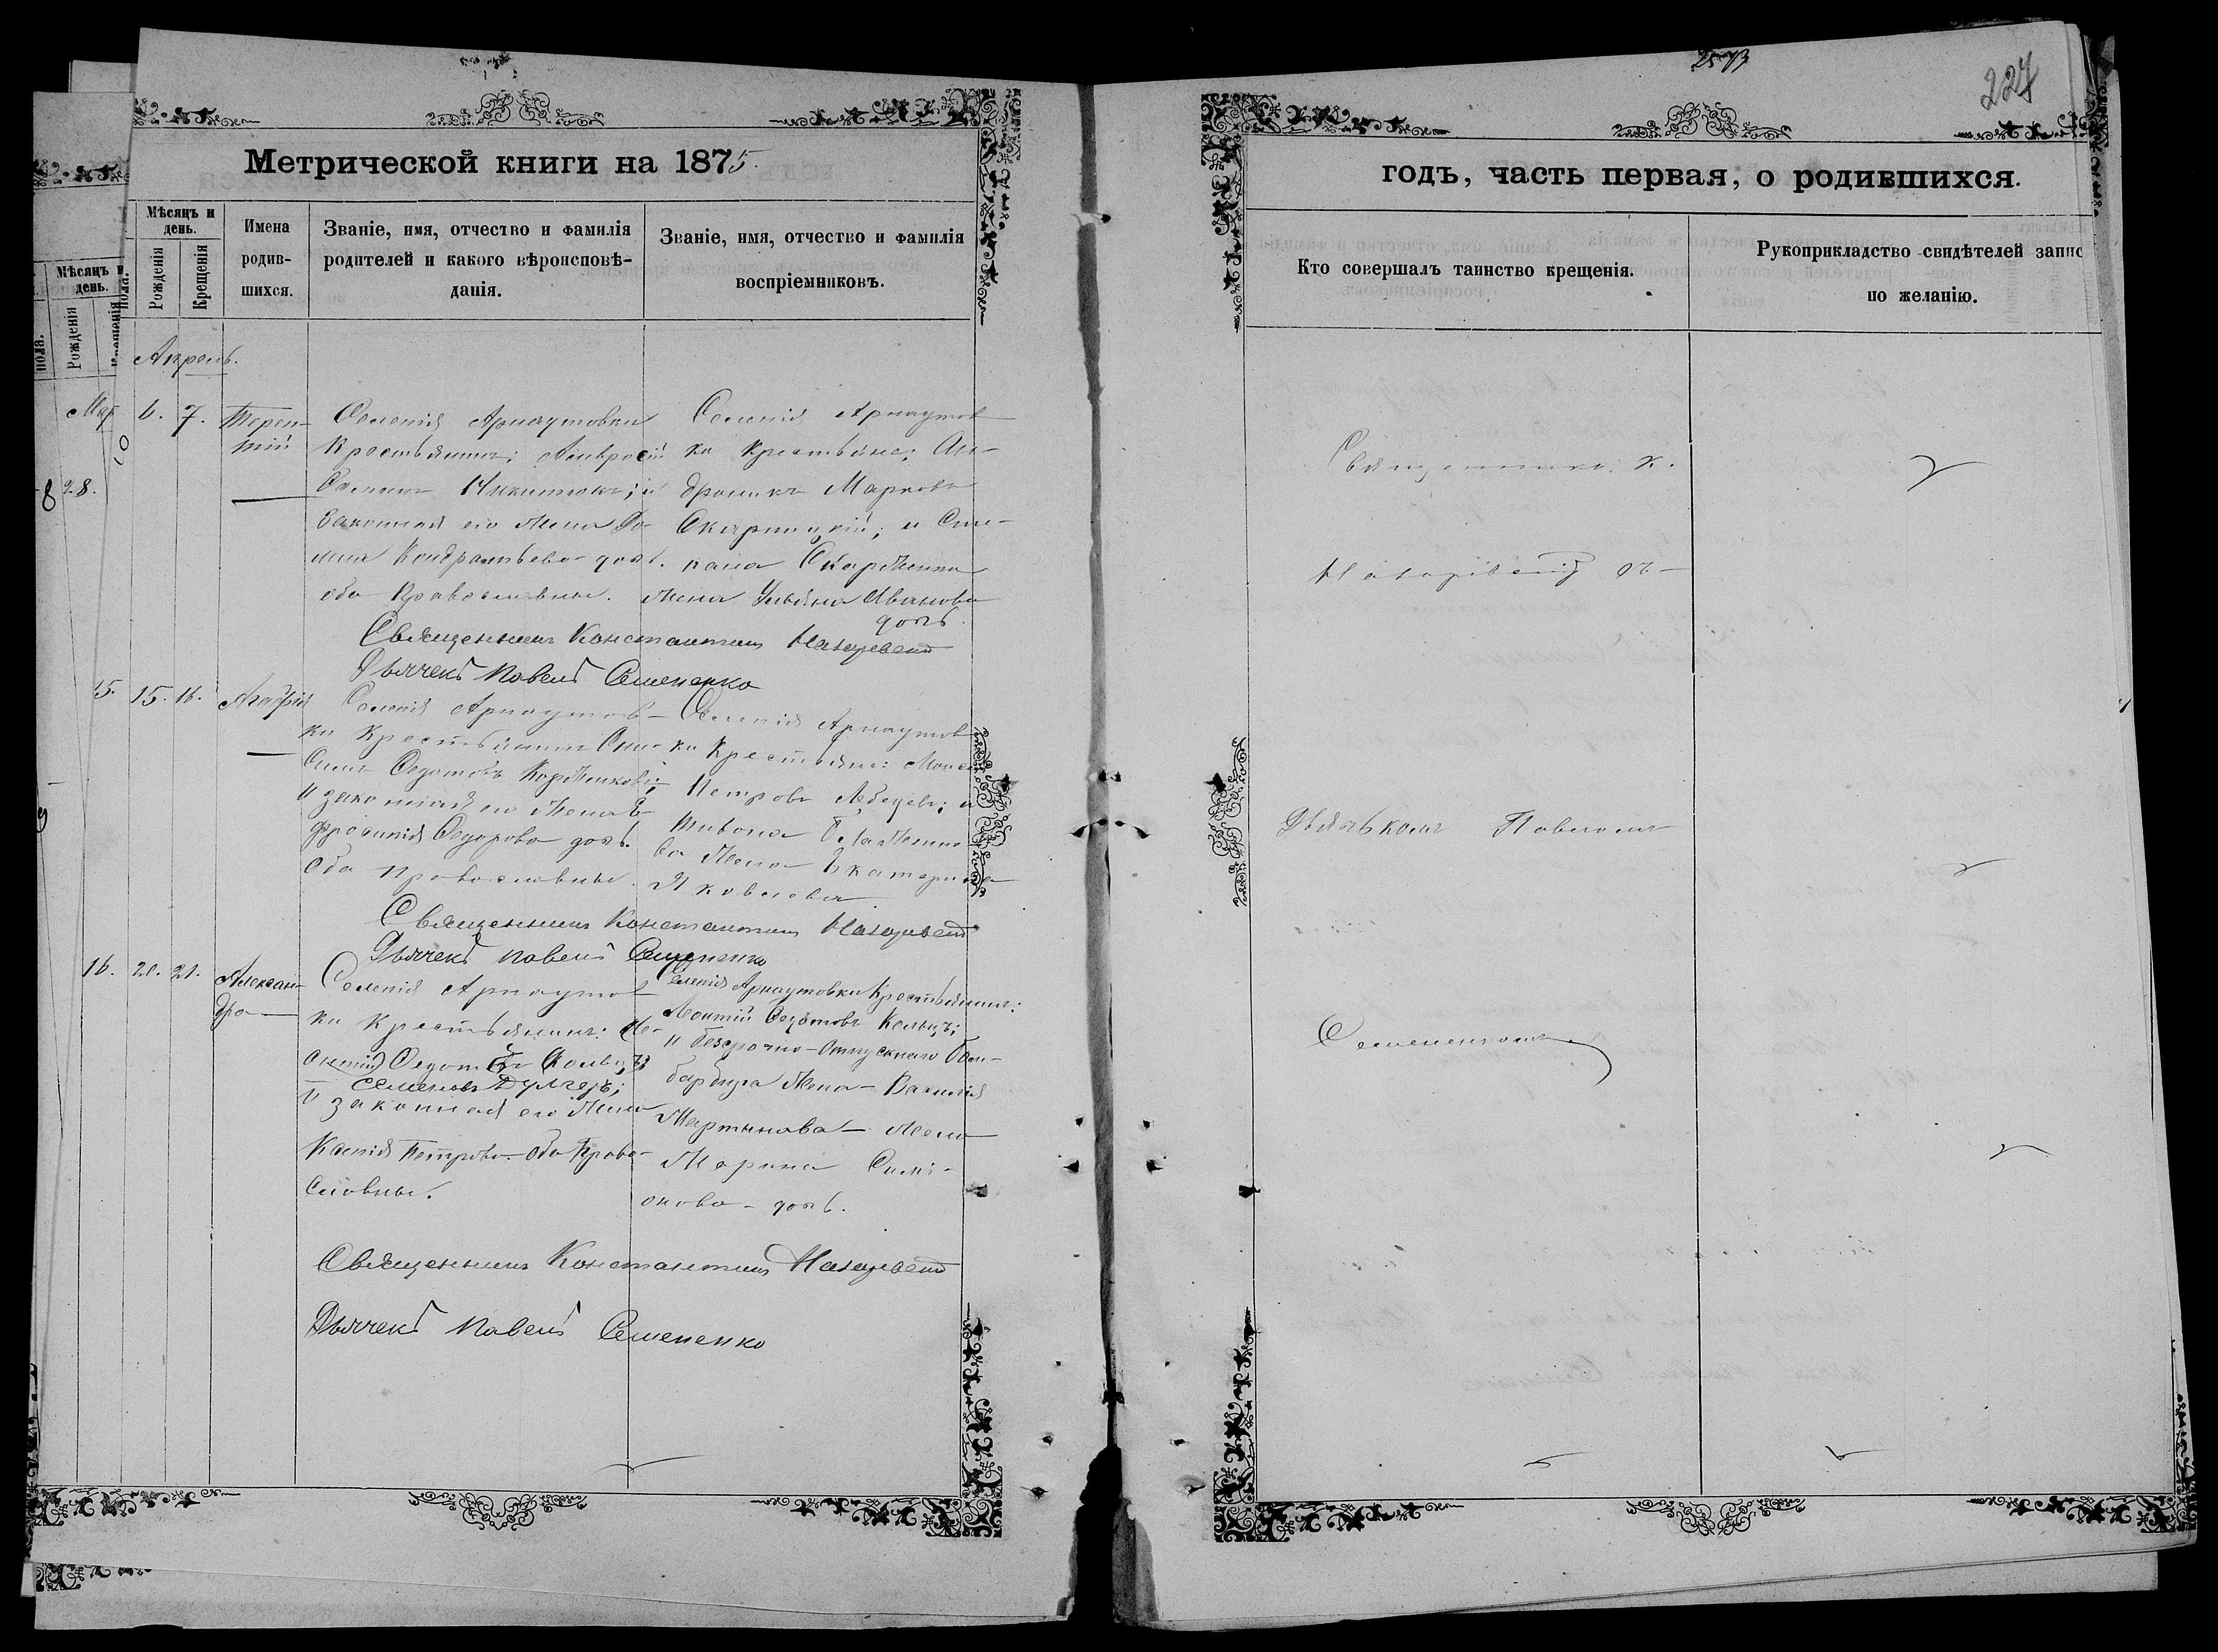 2573
227
Метрической книги на 1875.
годъ, часть первая, о родившихся.
Мѣсяцъ и день.
Рожденія
Крещенія
Имена родив-
шихся.
Званіе, имя, отчество и фамилія
родителей и какого вѣроисповѣ-
данія.
Званіе, имя, отчество и фамилія
воспріемниковъ.
Кто совершалъ таинство крещенія.
Рукоприкладство свидѣтелей запис
по желанію.
Мѣсяцъ и
день.
Рожденія
пола.
пола.
Апрель.
Мар
8 28.
6. 7. Терен-
тій
Селенія Арнаутовки
Крестьянинъ; Амвросій
Никитюкъ; и
законная его жена До-
мна Кондратьева дочь.
оба Православные.
Селенія Арнаутов
ки крестьяне; Ан-
дроникъ Марковъ
Скаржицкій; и Сте-
пана Скаржинца
жена Ульяна Иванова
дочь.
Священникъ Константинъ
Дьячекъ Павелъ Семененко
15. 15. 16. Агафія
Селенія Арнаутов-
ки Крестьянинъ Они-
симъ Федотовъ
и законная его жена Е-
фросинія Федорова дочь.
Оба православные.
Селенія Арнаутов
ки Крестьяне: Моисей
Петровъ Лебедевъ; и
жена Екатерина
Яковлева
Священникъ Константинъ
Дьячекъ Павелъ Семененко
16. 20. 21. Алексан-
дра
Селенія Арнаутов
ки Крестьянинъ: Ле-
онтій Федотовъ
Семеновъ Дулгеръ;
и законная его жена
Ксенія Петрова Оба Право-
славные.
Селенія Арнаутовки Крестьянинъ:
Леонтій Федотовъ
и безсрочно-Отпускнаго Бом-
бардира жена Василія
Мартынова жена
Марина Симі-
онова дочь.
Священникъ Константинъ
Дьячекъ Павелъ Семененко
Священникъ К.
съ
Дьячькомъ Павломъ
Семененкомъ